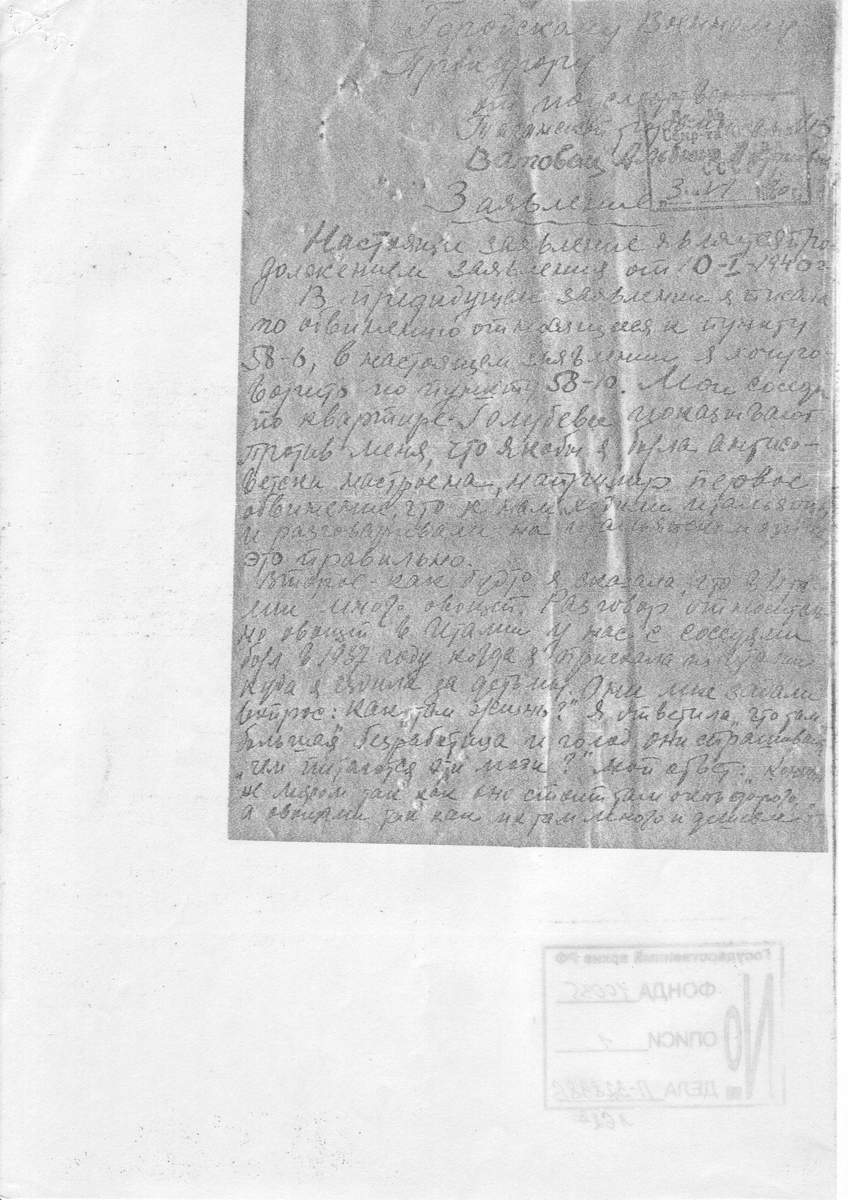 Городскому Военному
Прокурору
от последствен
Таганской
Заявление
Настоящие заявление является про-
должением заявления от 10-I-1940 г.
В предидущем заявлении я писала
по обвинению относящиеся к пункту
58-6, в настоящем заявлении я хочу го-
ворить по пункту 58-10. Мои соседи
по квартире Голубевы показывают
против меня, что якобы я была антисо-
ветски настроена, например первое
обвинение, что к нам ходили итальянцы
и разговаривали на итальянском языке
это правильно.
Второе - как будто я сказала, что в Ита-
лии много овощей. Разговор относитель
но овощей в Италии у нас с соседями
был в 1937 году когда я приехала
куда я ездила за детьми. Они мне задали
вопрос: "Как там жизнь?" Я ответила, "что там
большая безработица и голод", они спрашивали
"чем питаются эти люди?" мой ответ:
не мясом так как оно стоит там очень дорого,
а овощами так как их там много и дешево"
Государственный архив РФ
№
ФОНДА 10035
ОПИСИ 1
ДЕЛА П-